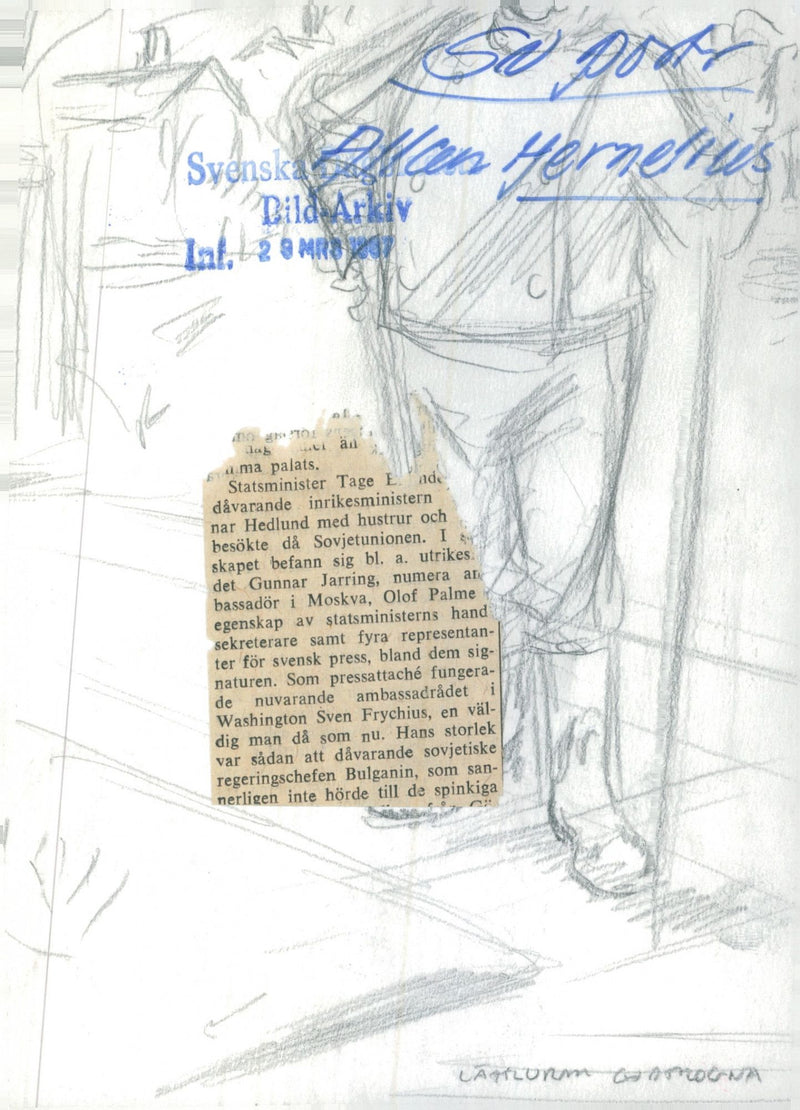 Sv Portr
Allan Hernelius
Svenska
Bild-Arkiv
Int. 29 MRS 1967
än
palats.
Statsminister Tage
dåvarande inrikesministern
nar Hedlund med hustrur och
besökte då Sovjetunionen. I
skapet befann sig bl. a. utrikes
det Gunnar Jarring, numera am
bassadör i Moskva, Olof Palme
egenskap av statsministerns hand
sekreterare samt fyra representan-
ter för svensk press, bland dem sig-
naturen. Som pressattaché fungera-
de nuvarande ambassadrådet i
Washington Sven Frychius, en väl-
dig man då som nu. Hans storlek
var sådan att dåvarande sovjetiske
regeringschefen Bulganin, som san-
nerligen inte hörde till de spinkiga